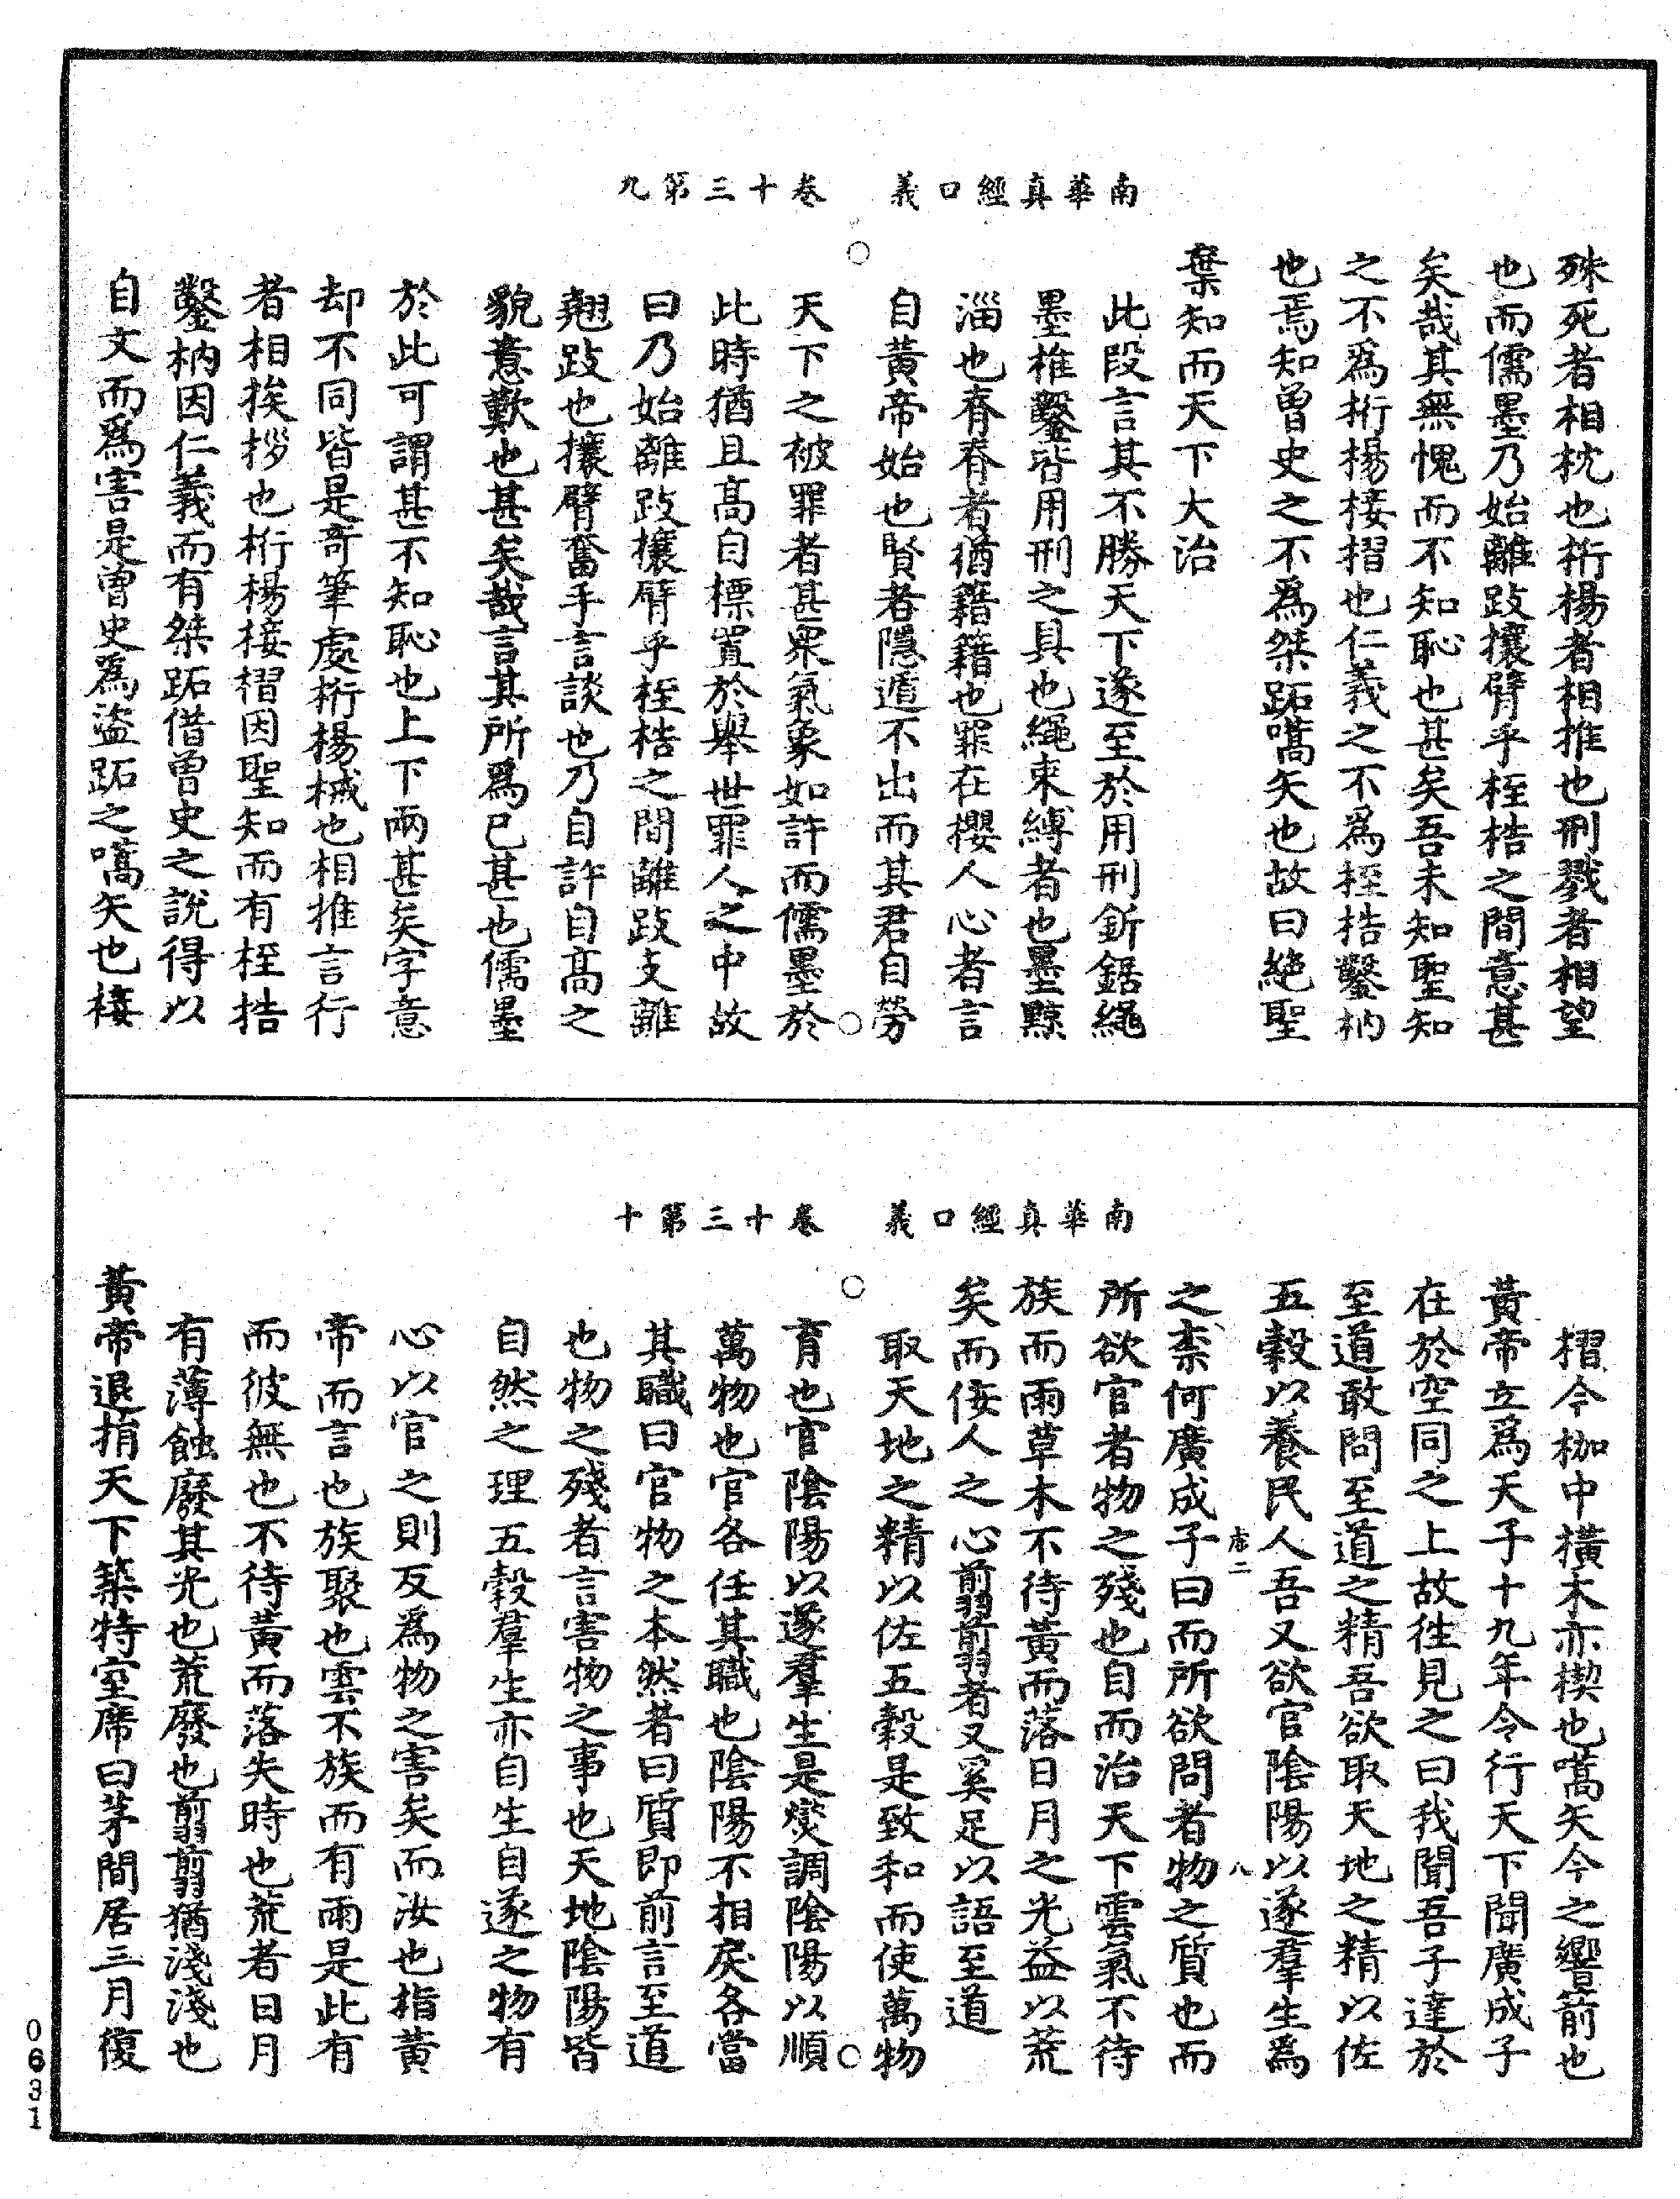 南華真經口義 卷十三第九
殊死者相枕也桁楊者相推也刑戮者相望
也而儒墨乃始離跂攘臂乎桎梏之間意甚
矣哉其無愧而不知恥也甚矣吾未知聖知
之不爲桁楊椄槢也仁義之不爲桎梏鑿枘
也焉知曾史之不爲桀跖嚆矢也故曰絶聖
棄知而天下大治
此段言其不勝天下遂至於用刑釿鋸繩
墨椎鑿皆用刑之具也繩束縛者也墨黥
淄也脊脊者猶籍籍也罪在攖人心者言
自黄帝始也賢者隱遁不出而其君自勞
天下之被罪者甚衆氣象如許而儒墨於
此時猶且高自標置於舉世罪人之中故
曰乃始離跂攘臂乎桎梏之間離跂支離
翹跂也攘臂奮手言談也乃自許自高之
貌意歎也甚矣哉言其所爲已甚也儒墨
於此可謂甚不知恥也上下兩甚矣字意
却不同皆是奇筆處桁楊械也相推言行
者相挨拶也桁楊椄槢因聖知而有桎梏
鑿枘因仁義而有桀跖借曾史之說得以
自文而爲害是曾史爲盜跖之嚆矢也椄
南華真經口義 卷十三第十
槢今枷中橫木亦楔也嚆矢今之響箭也
黄帝立爲天子十九年令行天下聞廣成子
在於空同之上故往見之曰我聞吾子達於
至道敢問至道之精吾欲取天地之精以佐
五穀以養民人吾又欲官陰陽以遂羣生爲
唐二 八
之柰何廣成子曰而所欲問者物之質也而
所欲官者物之殘也自而治天下雲氣不待
族而雨草木不待黄而落日月之光益以荒
矣而佞人之心翦翦者又奚足以語至道
取天地之精以佐五穀是致和而使萬物
育也官陰陽以遂羣生是燮調陰陽以順
萬物也官各任其職也陰陽不相戾各當
其職曰官物之本然者曰質即前言至道
也物之殘者言害物之事也天地陰陽皆
自然之理五穀羣生亦自生自遂之物有
心以官之則反爲物之害矣而汝也指黄
帝而言也族聚也雲不族而有雨是此有
而彼無也不待黄而落失時也荒者日月
有薄蝕廢其光也荒廢也翦翦猶淺淺也
黄帝退捐天下築特室席白茅間居三月復
0631